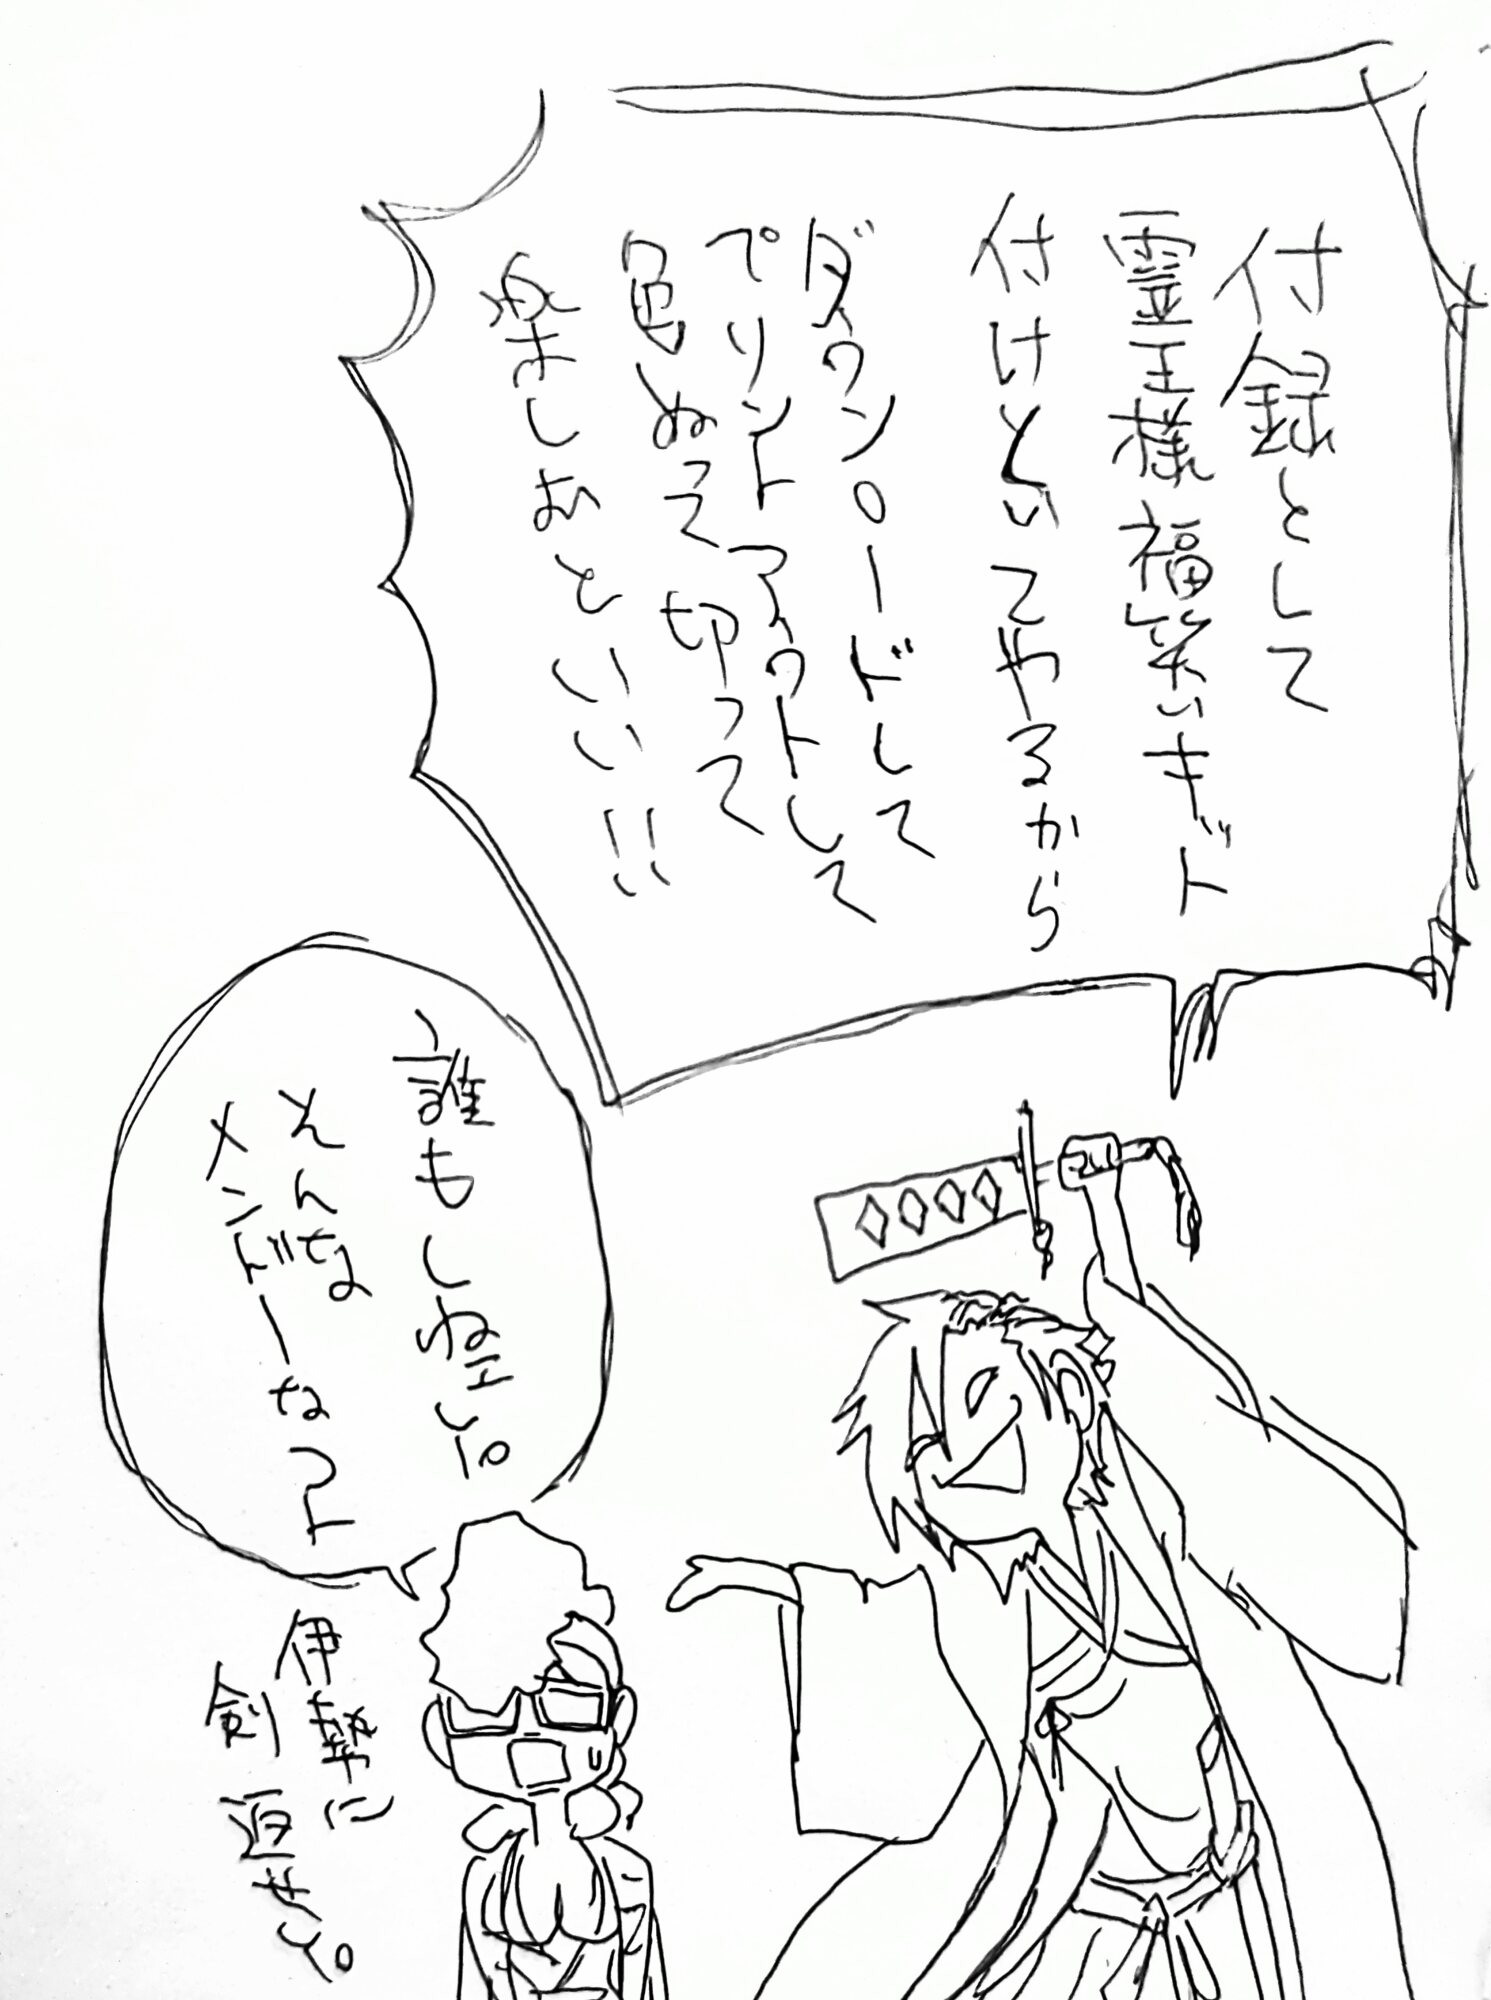 付録として
霊王様福笑いキット
付けといてやるから
ダウンロードして
プリントアウトして
色ぬって切って
楽しむといい!!
誰もしねェし。
そんな
メンドーなコト
伊勢に
剣返せし。